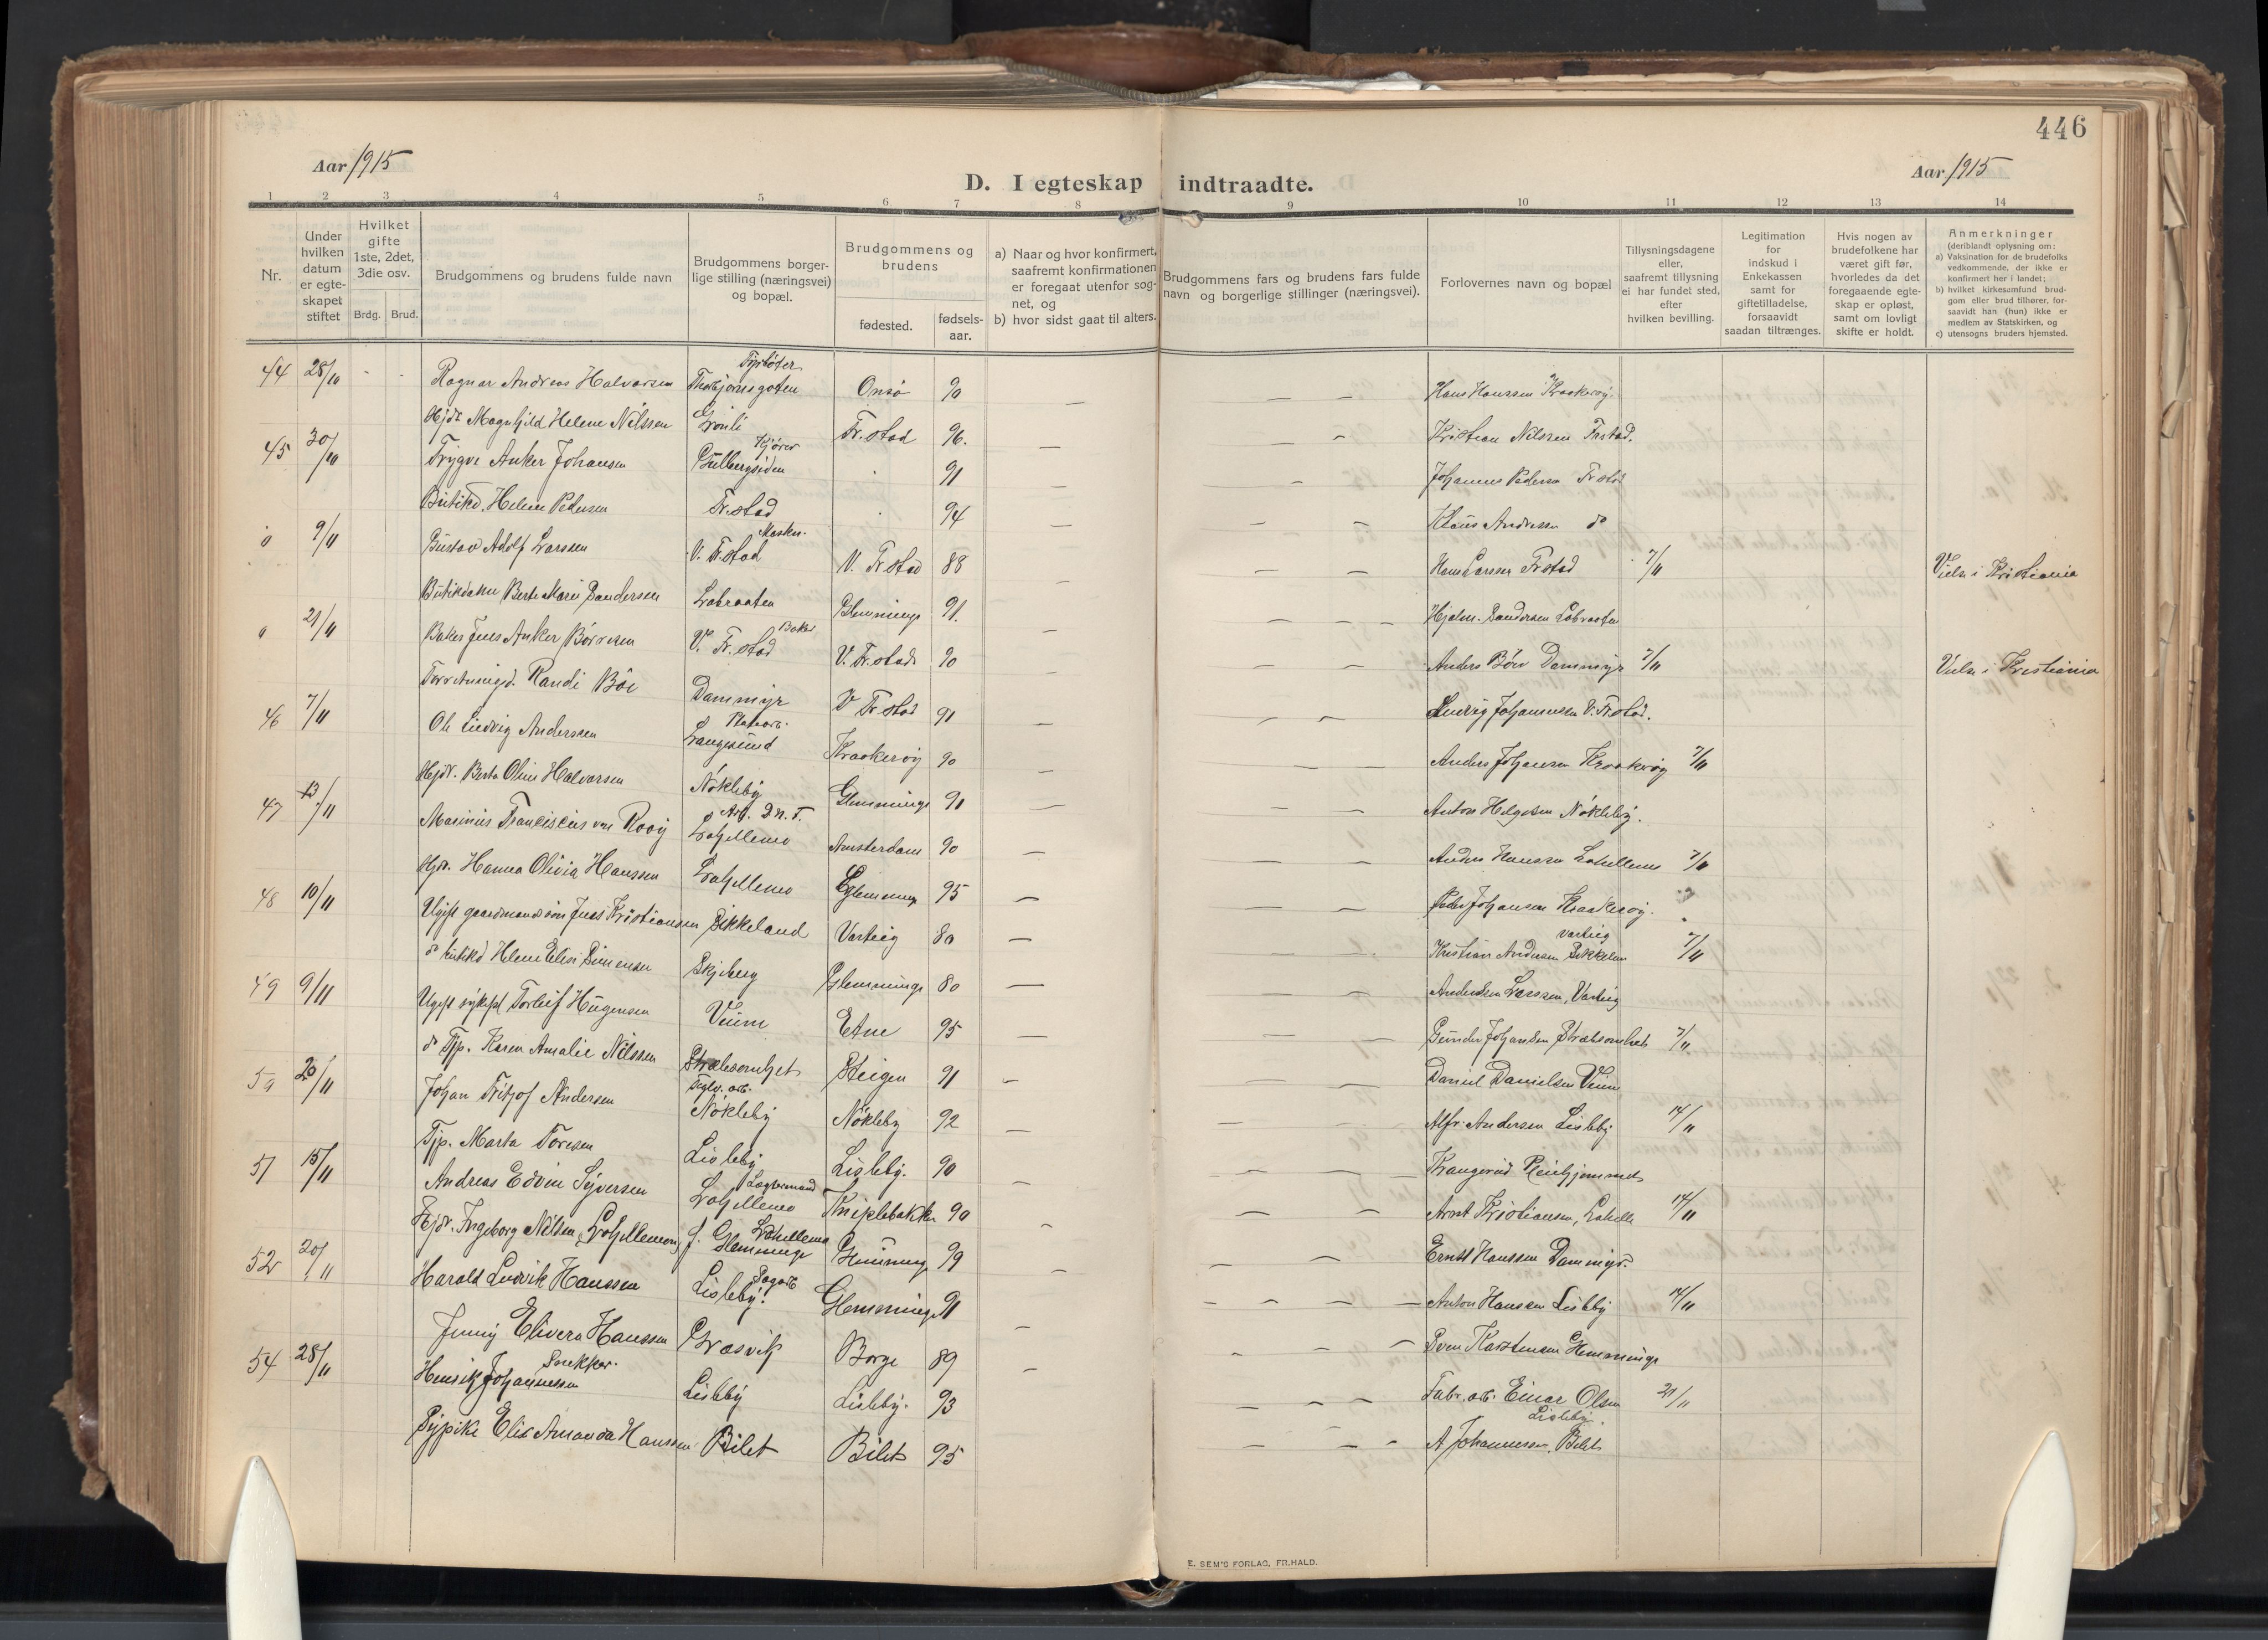 446
Aar 1915
Aar 1915
D. I egteskap indtraadte.
1 2 3 4 5 6 7 8 9 10 11 12 13 14
Nr.
Under hvilken datum er egteskapet stiftet
Hvilket gifte 1ste, 2det, 3die osv.
Brdg. Brud.
Brudgommens og brudens fulde navn
Brudgommens borgerlige stilling (næringsvei) og bopæl.
Brudgommens og brudens
fødested.
fødselsaar.
a) Naar og hvor konfirmert, saafremt konfirmationen er foregaat utenfor sognet, og
b) hvor sidst gaat til alters.
Brudgommens fars og brudens fars fulde navn og borgerlige stillinger (næringsvei).
Forlovernes navn og bopæl
Tillysningsdagene eller, saafremt tillysning ei har fundet sted, efter hvilken bevilling.
Legitimation for indskud i Enkekassen samt for giftetilladelse, forsaavidt saadan tiltrænges.
Hvis nogen av brudefolkene har været gift før, hvorledes da det foregaaende egteskap er opløst, samt om lovligt skifte er holdt.
Anmerkninger
(deriblandt oplysning om:
a) Vaksination for de brudefolks vedkommende, der ikke er konfirmert her i landet;
b) hvilket kirkesamfund brudgom eller brud tilhører, forsaavidt han (hun) ikke er medlem av Statskirken, og
c) utensogns bruders hjemsted.
44 28/10 - - Ragnar Andreas Halvorsen Thorbjørnsgaten Onsø 90 Hans Hanssen Kraakerøy.
Hjdr Magnhild Helene Nilssen Grønli Fr.stad 96. Kristian Nilssen Frstad.
45 30/10 Trygve Anker Johansen Kjører Gulbergsiden 91 Johannes Pedersen Frstad
Butikd. Helene Pedersen Fr.stad 94 Klaus Andressen do
0 9/11 Gustav Adolf Larssen V. Fr.stad V. Fr.stad 88 Hans Larssen Frstad 7/11 Vielse i Kristiania
Berte Marie Sandersen Labraaten Glemminge 91. Hjalm. Sandersen Labraaten
0 21/11 Baker Jens Anker Børresen Baker V. Fr.stad V. Fr.stad 90 Anders Bøe Dammyr 7/11 Vielse i Kristiania
Randi Böe Dammyr V Fr.stad 91 Ludvig Johannessen V. Fr.stad.
46 7/11 Ole Ludvig Anderssen Langesund Kraakerøy 90 Anders Johansen Kraakerøy 7/11
Hjdr. Berta Oline Halvorsen Nökleby Glemminge 91 Anton Helgesen Nökleby.
47 13/11 Marinus Franciscus van Rooy Lahellemo Amsterdam 90 Anders Hanssen Lahellemo 7/11
Hjdr. Hanna Olivia Hanssen Lahellemo Glemminge 95 Peder Johansen Kraakerøy.
48 10/11 Ugift gaardmandssøn Jens Kristiansen Sikkeland Varteig 80 Kristian Andersen Sikkeland Varteig 7/11
do butikd Helene Elise Simensen Skjeberg Glemminge 80 Larssen, Varteig
49 9/11 Ugift Torleif Haugensen Veum Etne 95 Gunder Johansen Stræbsomhet 7/11
do Tjp. Karen Amalie Nilssen Stræbsomhet Steigen 91 Daniel Danielsen Veum
50 20/11 Johan Fritjof Andersen Teglv. arb. Nökleby Nökleby 92 Alfr. Andersen Lisleby 14/11
Tjp. Marta Toresen Lisleby Lisleby. 90
51 15/11 Andreas Edvin Syversen Lahellemo Kniplebakken 90 Arnt Kristiansen, Lahelle 14/11
Hjdr. Ingeborg Nilsen, Lahellemo f. Glemminge Lahellemo Glemminge 99 Ernst Hanssen Dammyr.
52 20/11 Harald Ludvik Hanssen Sagarb Lisleby. Glemminge 91 Anton Hanssen Lisleby 14/11
Jenny Elivera Hanssen Græsvik Borge 89 Sven Karstensen Glemminge
54 28/11 Henrik Johannessen Snekker. Lisleby Lisleby. 93 Fabr. arb. Einar Olsen Lisleby. 21/11
Sypike Elise Amanda Hanssen Bilet Bilet 95 A Johannessen, Bilet
E. SEM'S FORLAG, FR.HALD.